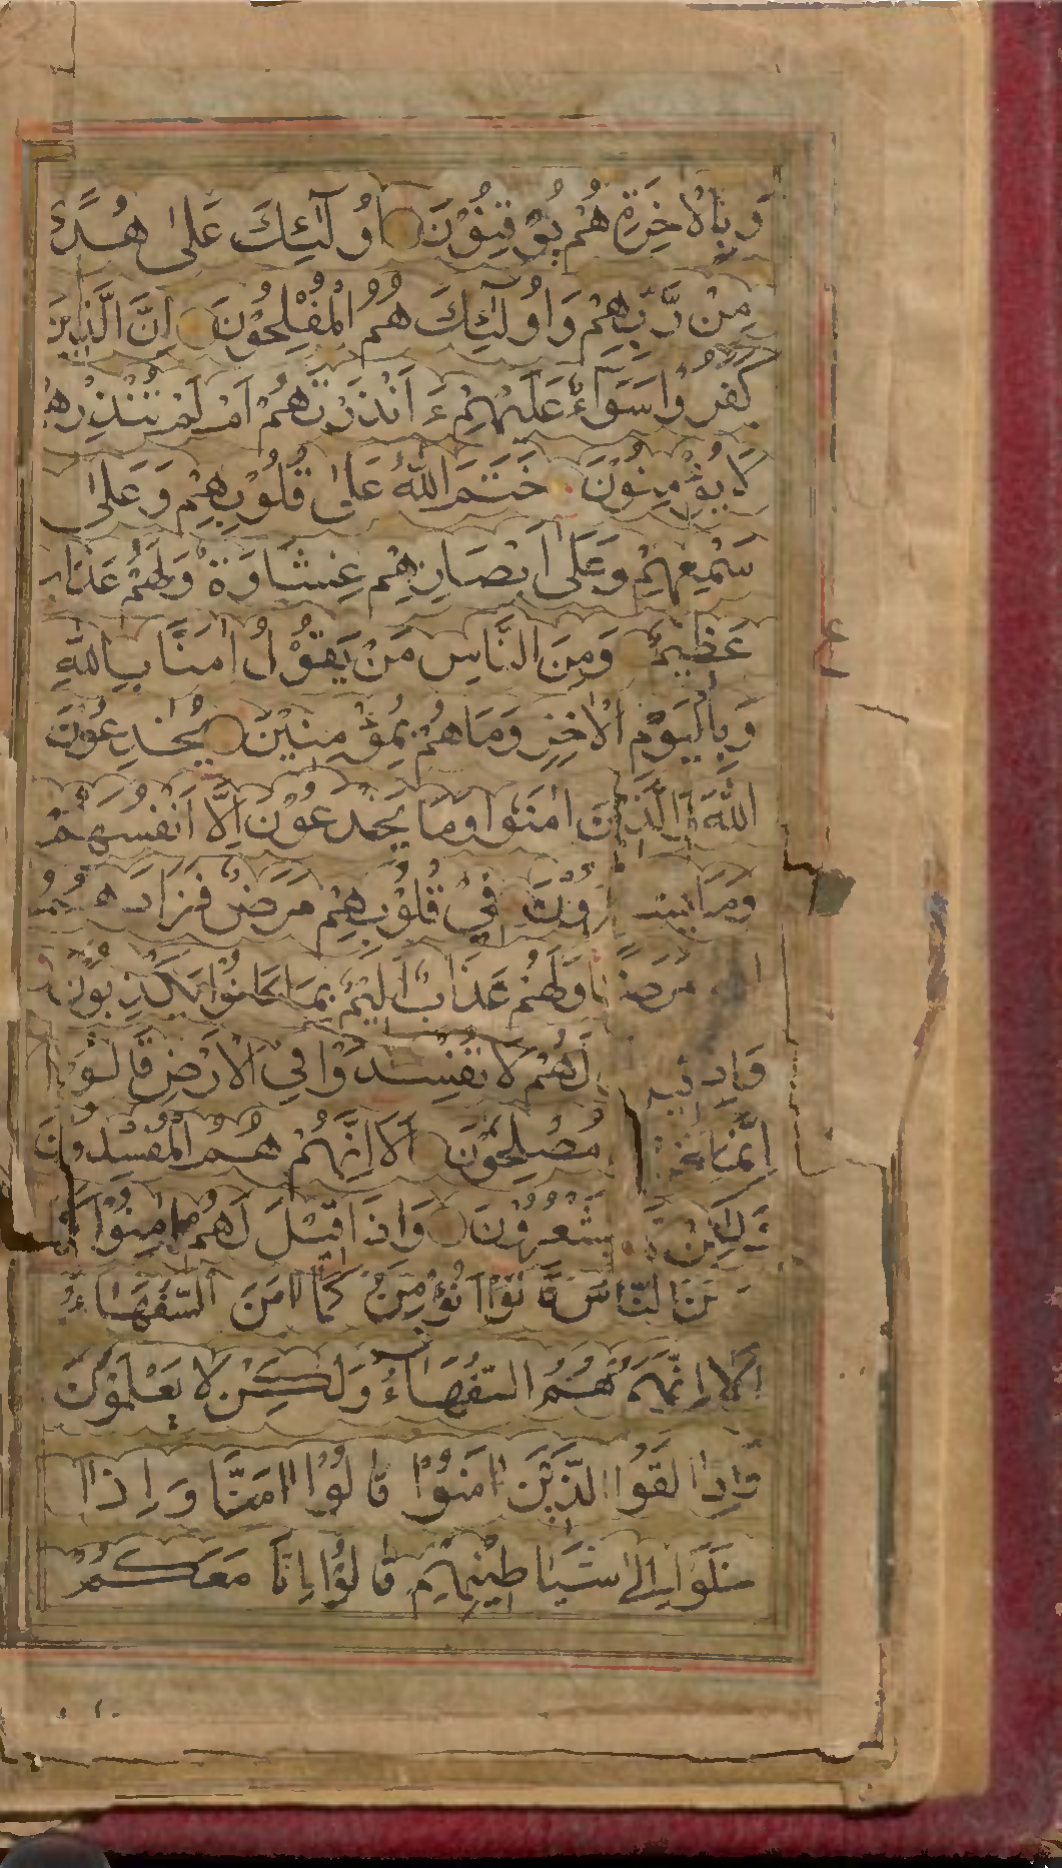 وَبِالْاٰخِرَةِ هُمْ يُوْقِنُوْنَ اُولٰٓئِكَ عَلٰى هُدًى
مِنْ رَّبِّهِمْ وَاُولٰٓئِكَ هُمُ الْمُفْلِحُوْنَ اِنَّ الَّذِيْنَ
كَفَرُوْا سَوَآءٌ عَلَيْهِمْ ءَاَنْذَرْتَهُمْ اَمْ لَمْ تُنْذِرْهُمْ
لَا يُؤْمِنُوْنَ خَتَمَ اللّٰهُ عَلٰى قُلُوْبِهِمْ وَعَلٰى
سَمْعِهِمْ وَعَلٰى اَبْصَارِهِمْ غِشَاوَةٌ وَلَهُمْ عَذَابٌ
عَظِيْمٌ وَمِنَ النَّاسِ مَنْ يَقُوْلُ اٰمَنَّا بِاللّٰهِ
وَبِالْيَوْمِ الْاٰخِرِ وَمَا هُمْ بِمُؤْمِنِيْنَ يُخٰدِعُوْنَ
اللّٰهَ وَالَّذِيْنَ اٰمَنُوْا وَمَا يَخْدَعُوْنَ اِلَّا اَنْفُسَهُمْ
وَمَا فِيْ قُلُوْبِهِمْ مَرَضٌ فَزَادَهُمُ
مَرَضًا وَلَهُمْ عَذَابٌ اَلِيْمٌ بِمَا كَانُوْا يَكْذِبُوْنَ
وَاِذَا لَهُمْ لَا تُفْسِدُوْا فِي الْاَرْضِ قَالُوْا
اِنَّمَا مُصْلِحُوْنَ اَلَا اِنَّهُمْ هُمُ الْمُفْسِدُوْنَ
وَلٰكِنْ يَشْعُرُوْنَ وَاِذَا قِيْلَ لَهُمْ اٰمِنُوْا
النَّاسُ قَالُوْا اَنُؤْمِنُ كَمَا اٰمَنَ السُّفَهَآءُ
اَلَا اِنَّهُمْ هُمُ السُّفَهَآءُ وَلٰكِنْ لَا يَعْلَمُوْنَ
وَاِذَا لَقُوا الَّذِيْنَ اٰمَنُوْا قَالُوْا اٰمَنَّا وَاِذَا
خَلَوْا اِلٰى شَيَاطِيْنِهِمْ قَالُوْا اِنَّا مَعَكُمْ
ع